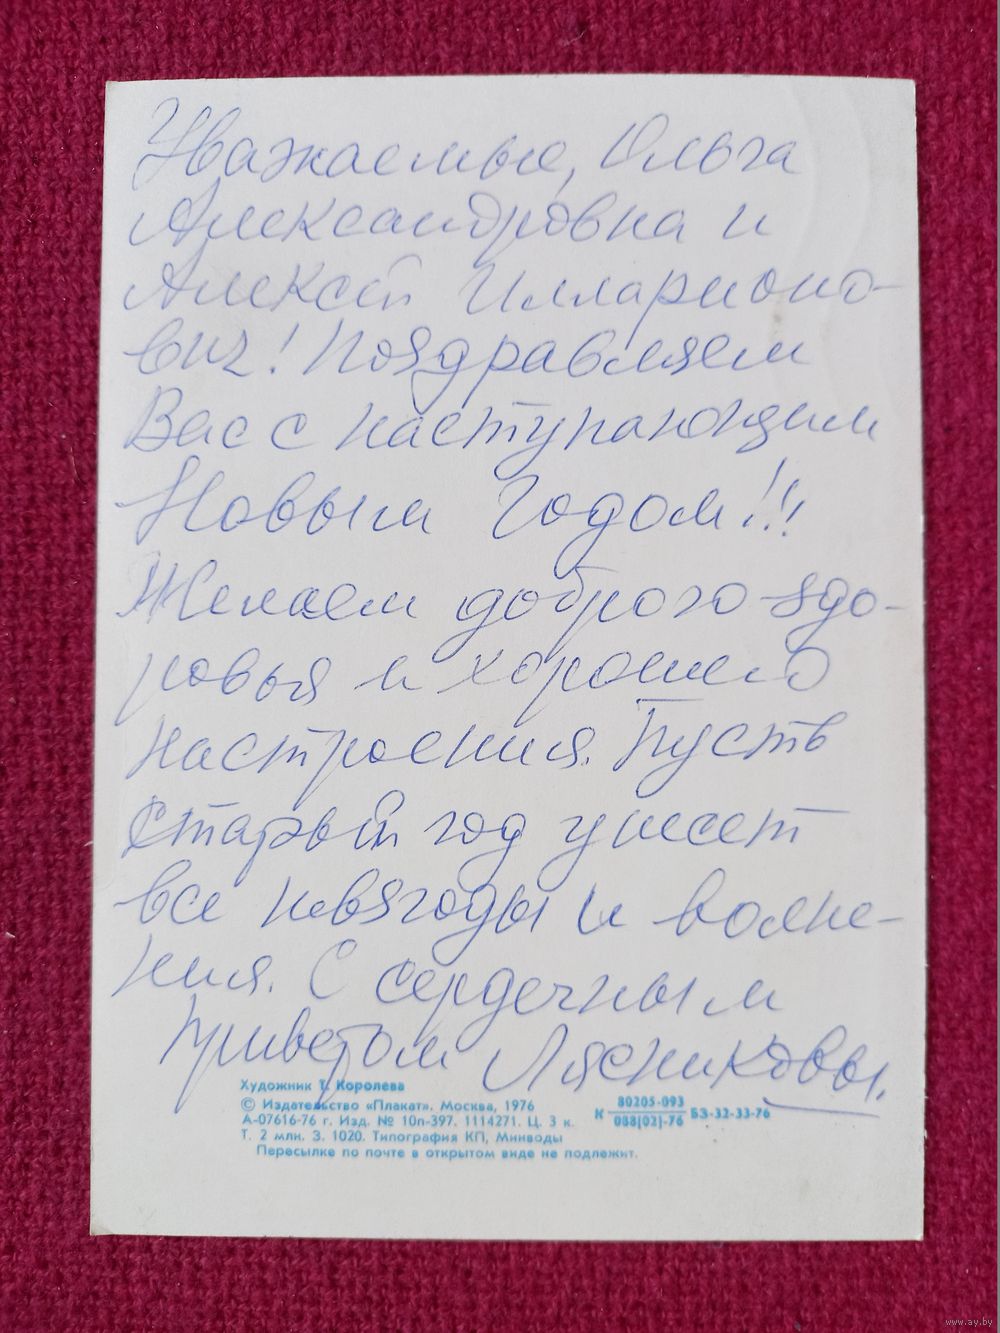 Уважаемые, Ольга
Александровна и
Алексей Илларионо-
вич! Поздравляем
Вас с наступающим
Новым Годом!!!
Желаем доброго здо-
ровья и хорошего
настроения. Пусть
старый год унесет
все невзгоды и волне-
ния. С сердечным
приветом Лясниковы.
Художник Т. Королева
© Издательство «Плакат». Москва, 1976
А-07616-76 г. Изд. № 10п-397. 1114271. Ц. 3 к.
Т. 2 млн. З. 1020. Типография КП, Минводы
Пересылке по почте в открытом виде не подлежит.
К 80205-093 / 088(02)-76 БЗ-32-33-76
www.ay.by